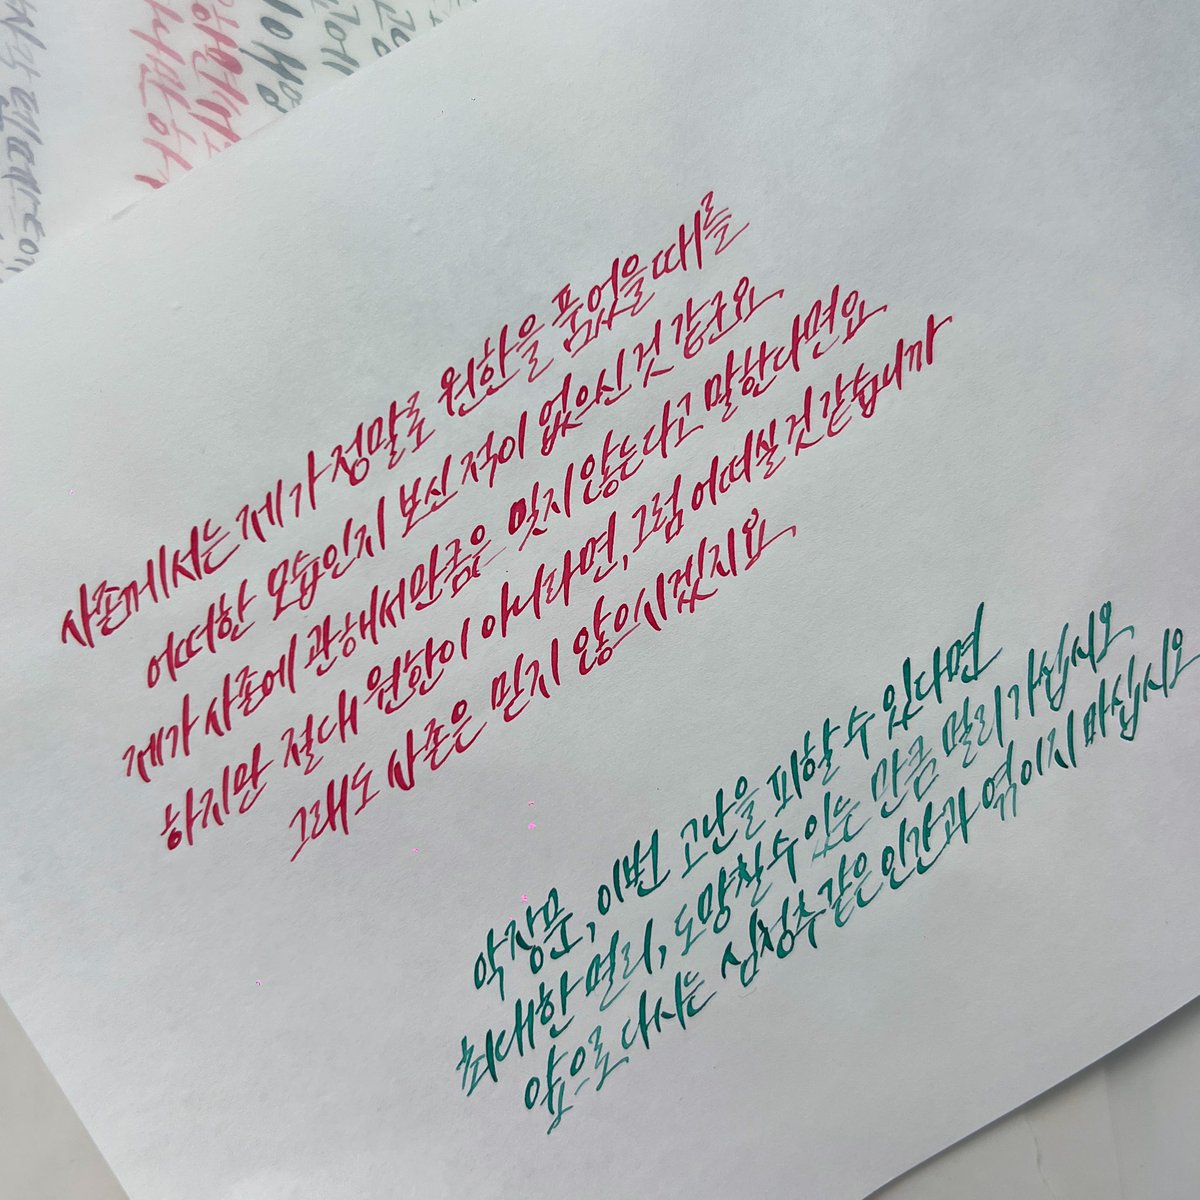 사존께서는 제가 정말로 원한을 품었을 때를
어떠한 모습인지 보신 적이 없으신 것 같군요
제가 사존에 관해서만큼은 믿지 않는다고 말한다면요
하지만 절대 원한이 아니라면, 그럼 어떠실 것 같습니까
그래도 사존은 믿지 않으시겠지요
악장문, 이번 고난을 피할 수 있다면
최대한 멀리, 도망칠 수 있는 만큼 멀리 가십시오
앞으로 다시는 심청추같은 인간과 엮이지 마십시오